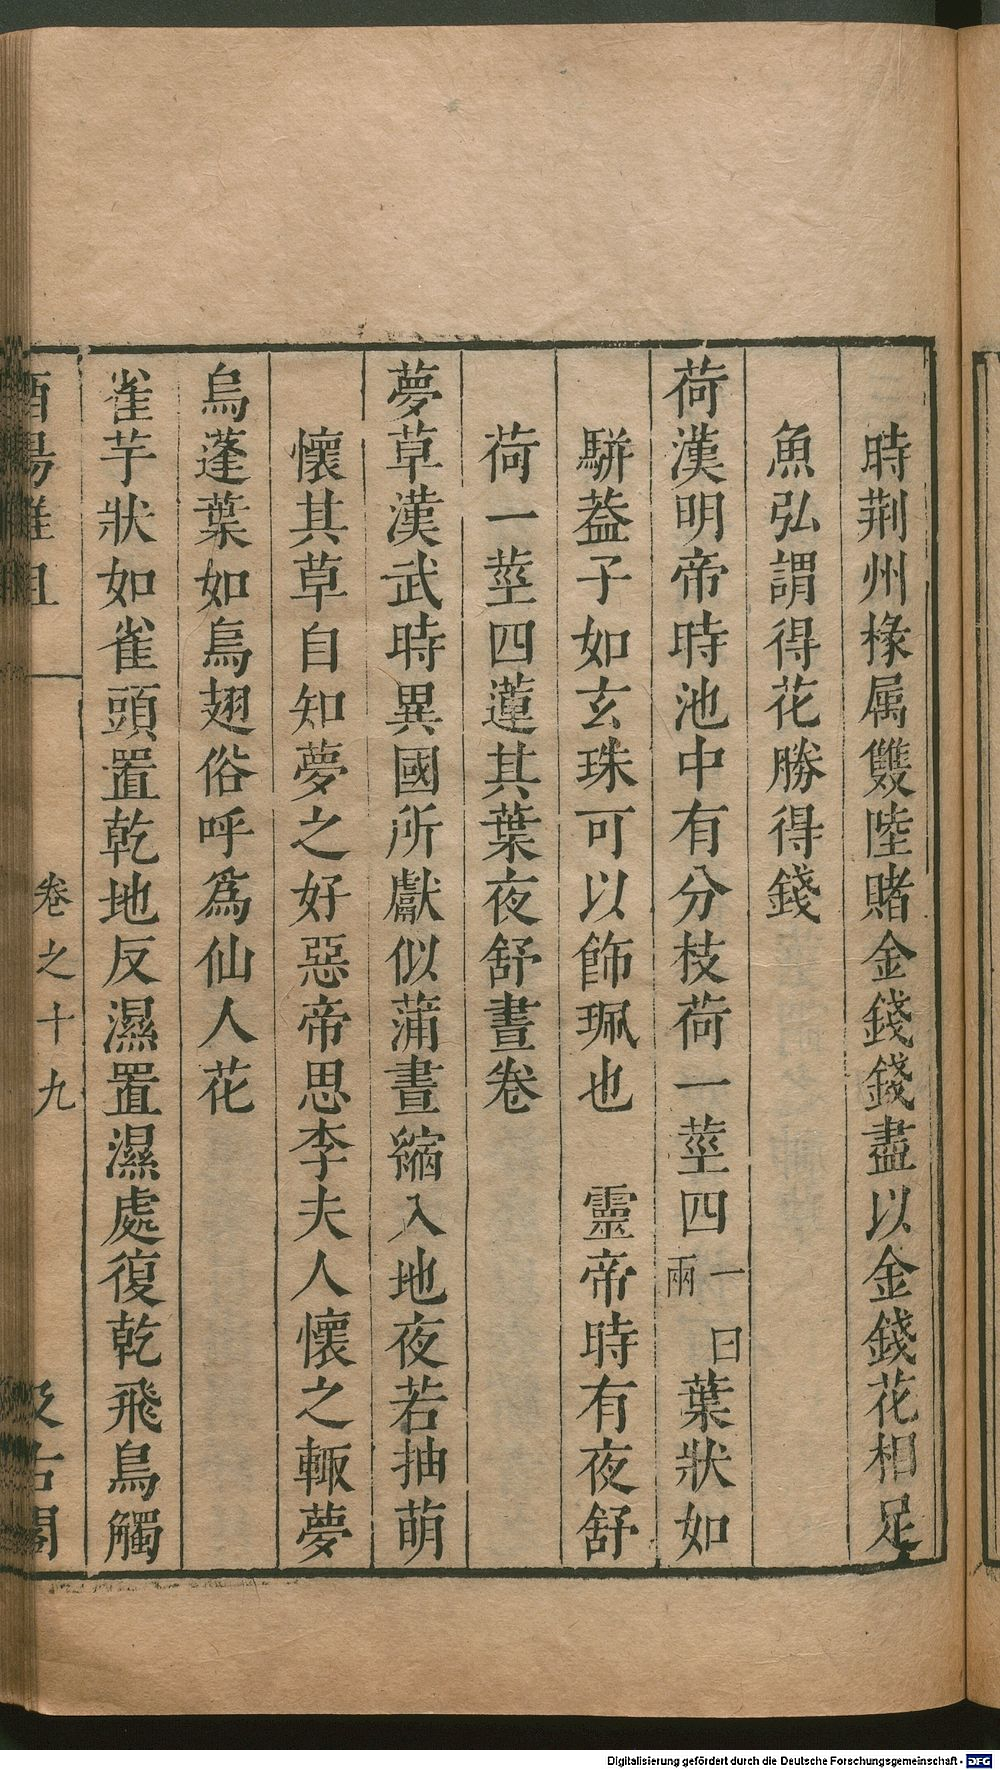 時荆州椽属雙陸賭金錢錢盡以金錢花相足
魚弘謂得花勝得錢
荷漢明帝時池中有分枝荷一莖四一曰兩葉狀如
駢葢子如玄珠可以飾珮也　靈帝時有夜舒
荷一莖四蓮其葉夜舒晝卷
夢草漢武時異國所獻似蒲晝縮入地夜若抽萌
懷其草自知夢之好惡帝思李夫人懷之輙夢
烏蓬葉如鳥翅俗呼爲仙人花
雀芋狀如雀頭置乾地反濕置濕處復乾飛鳥觸
酉陽雜俎　卷之十九　汲古閣
Digitalisierung gefördert durch die Deutsche Forschungsgemeinschaft - DFG